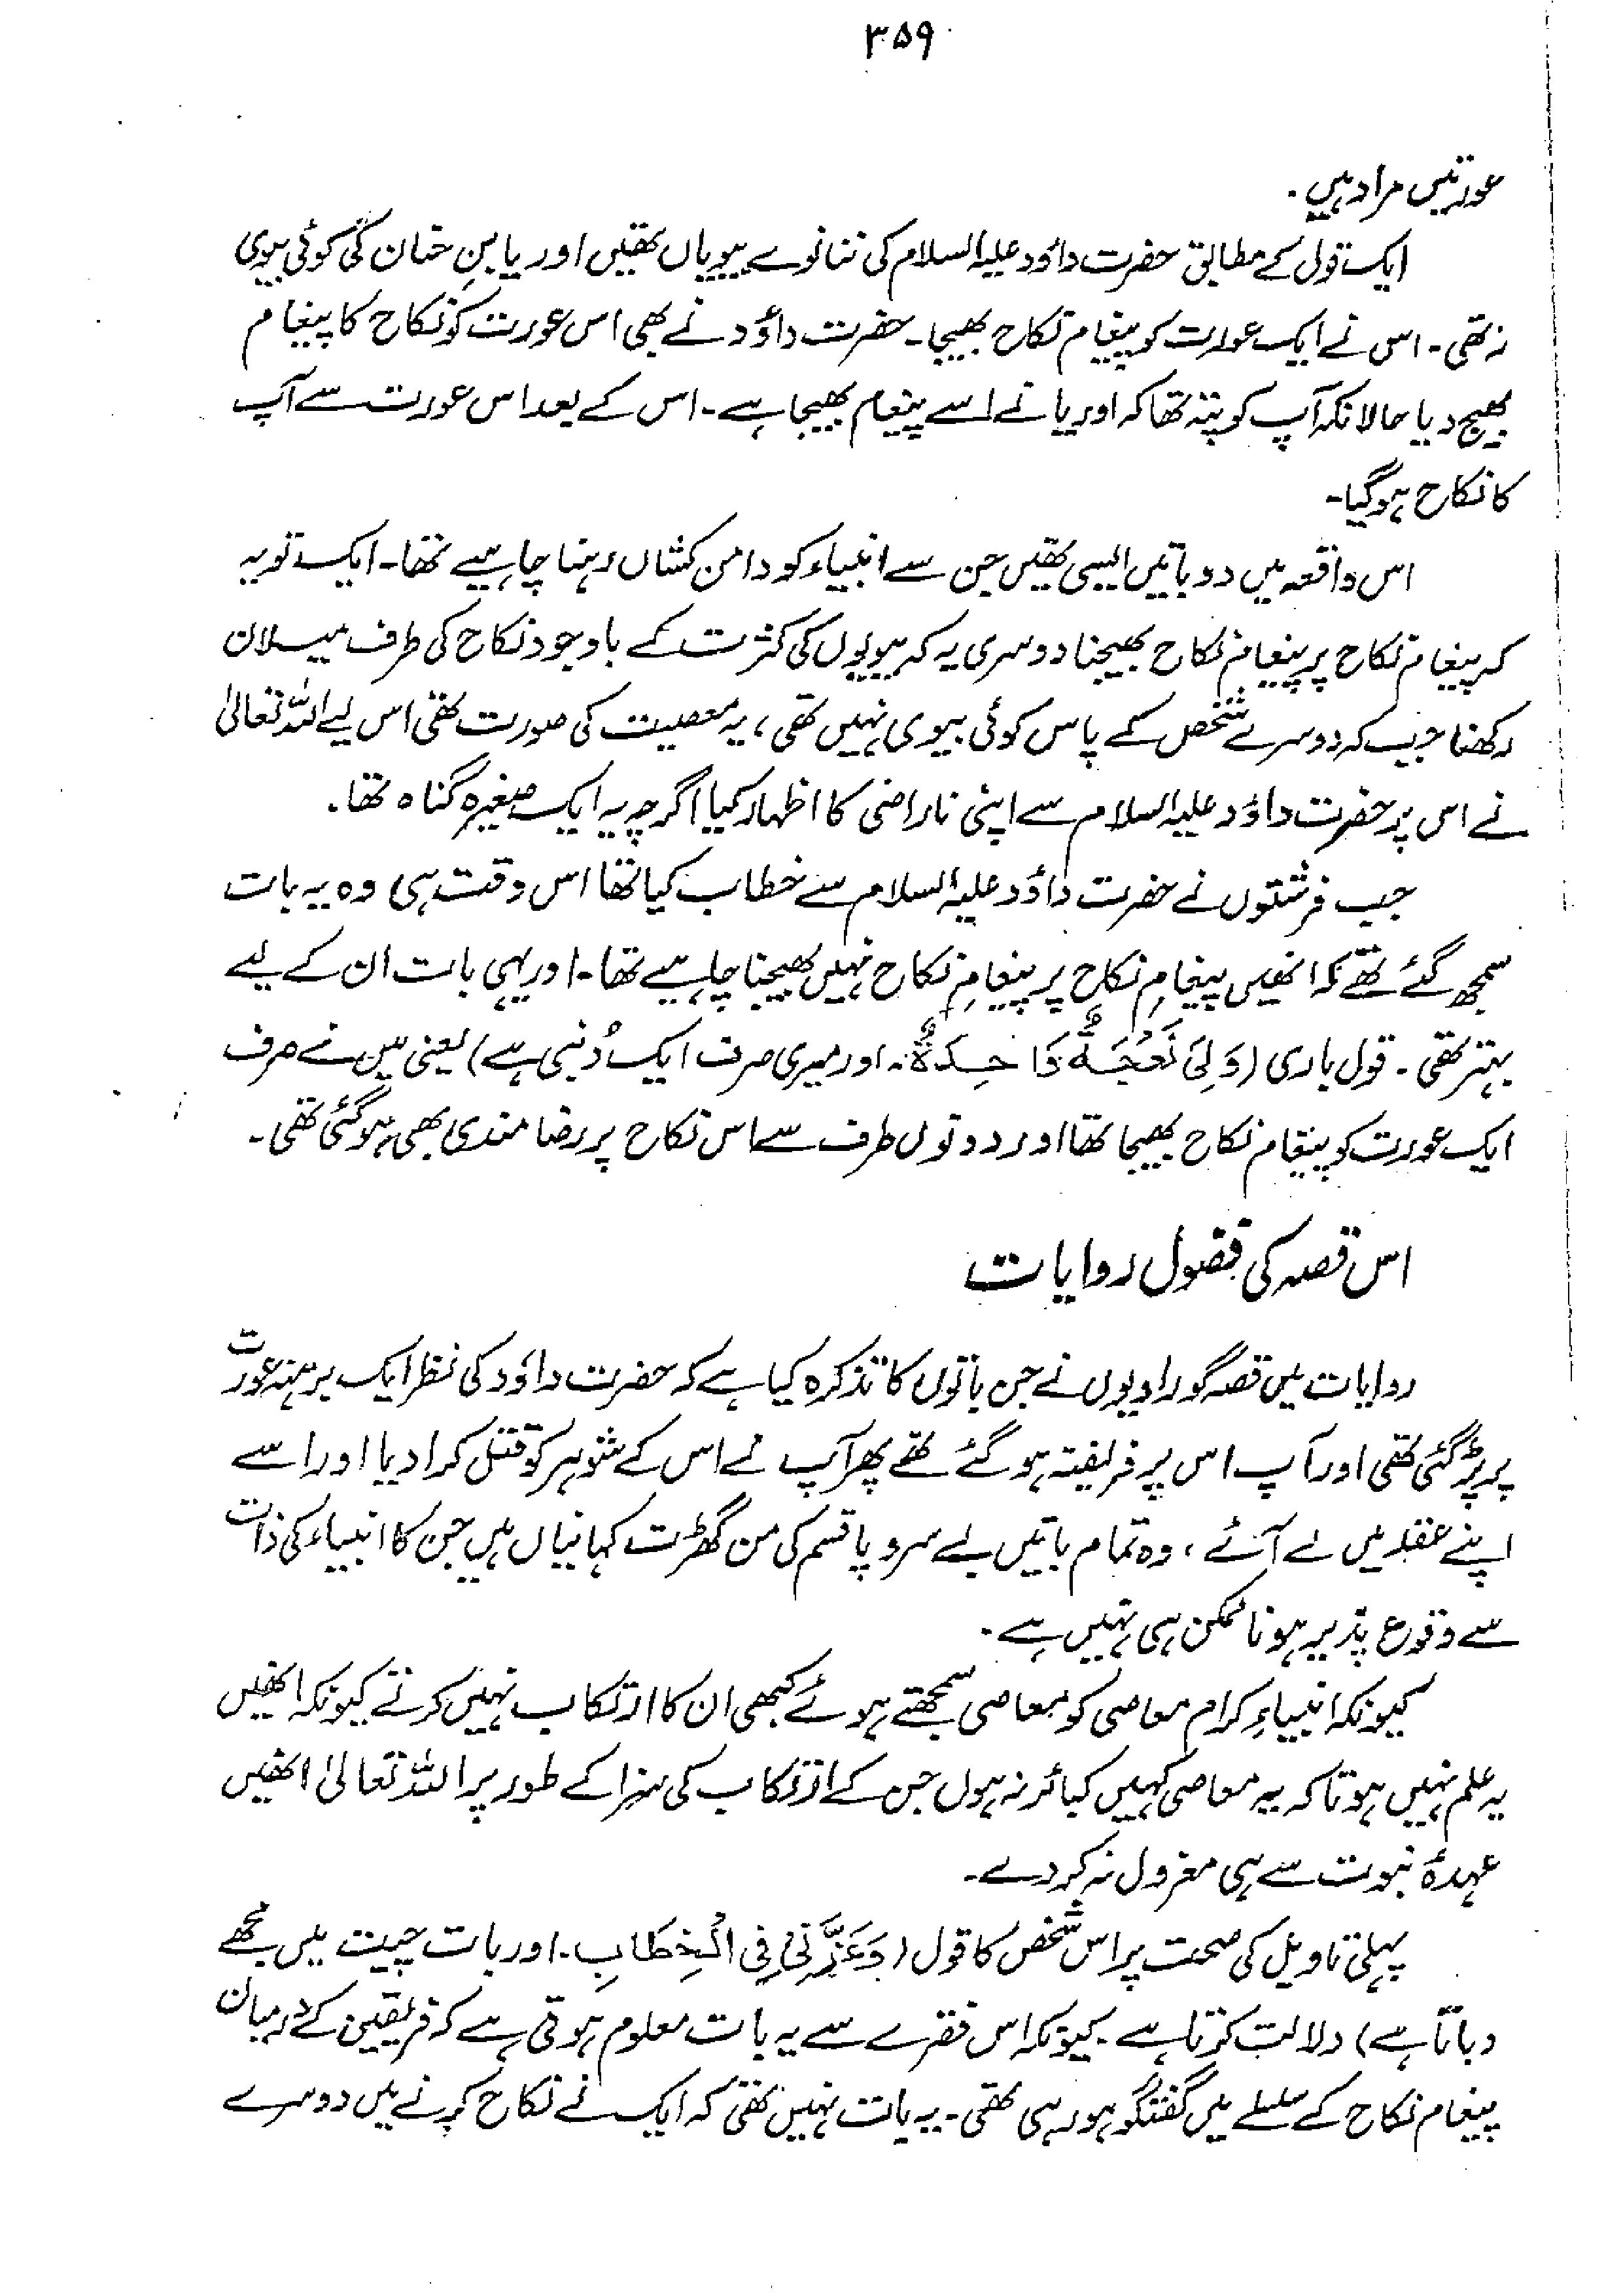 ۳۵۹
عورتیں مراد ہیں۔
ایک قول کے مطابق حضرت داؤد علیہ السلام کی ننانوے بیویاں تھیں اور یا بنِ حنان کی کوئی بیوی
نہ تھی۔ اس نے ایک عورت کو پیغام نکاح بھیجا۔ حضرت داؤد نے بھی اس عورت کو نکاح کا پیغام
بھیج دیا حالانکہ آپ کو پتہ تھا کہ اور یا نے اسے پیغام بھیجا ہے۔ اس کے بعد اس عورت سے آپ
کا نکاح ہوگیا۔
اس واقعہ میں دو باتیں ایسی تھیں جن سے انبیاء کو دامن کشاں رہنا چاہیے تھا۔ ایک تو یہ
کہ پیغام نکاح پر پیغام نکاح بھیجنا دوسری یہ کہ بیویوں کی کثرت کے باوجود نکاح کی طرف میلان
رکھنا جب کہ دوسرے شخص کے پاس کوئی بیوی نہیں تھی، یہ معصیت کی صورت تھی اس لیے اللہ تعالیٰ
نے اس پر حضرت داؤد علیہ السلام سے اپنی ناراضی کا اظہار کیا اگرچہ یہ ایک صغیرہ گناہ تھا۔
جب فرشتوں نے حضرت داؤد علیہ السلام سے خطاب کیا تھا اس وقت ہی وہ یہ بات
سمجھ گئے تھے کہ انھیں پیغامِ نکاح پر پیغامِ نکاح نہیں بھیجنا چاہیے تھا۔ اور یہی بات ان کے لیے
بہتر تھی۔ قول باری (وَلِیَ نَعْجَۃٌ وَّاحِدَۃٌ۔ اور میری صرف ایک دُنبی ہے) یعنی میں نے صرف
ایک عورت کو پیغام نکاح بھیجا تھا اور دونوں طرف سے اس نکاح پر رضامندی بھی ہوگئی تھی۔
اس قصہ کی فضول روایات
روایات میں قصہ گو راویوں نے جن باتوں کا تذکرہ کیا ہے کہ حضرت داؤد کی نظر ایک برہنہ عورت
پر پڑ گئی تھی اور آپ اس پر فریفتہ ہو گئے تھے پھر آپ نے اس کے شوہر کو قتل کرا دیا اور اسے
اپنے عقد میں لے آئے، وہ تمام باتیں بے سروپا قسم کی من گھڑت کہانیاں ہیں جن کا انبیاء کی ذات
سے وقوع پذیر ہونا ممکن ہی نہیں ہے۔
کیونکہ انبیاءِ کرام معاصی کو معاصی سمجھتے ہوئے کبھی ان کا ارتکاب نہیں کرتے کیونکہ انھیں
یہ علم نہیں ہوتا کہ یہ معاصی کہیں کبائر نہ ہوں جن کے ارتکاب کی سزا کے طور پر اللہ تعالیٰ انھیں
عہدۂ نبوت سے ہی معزول نہ کردے۔
پہلی تاویل کی صحت پر اس شخص کا قول (وَعَزَّنِیْ فِی الْخِطَابِ۔ اور بات چیت میں مجھے
دباتا ہے) دلالت کرتا ہے۔ کیونکہ اس فقرے سے یہ بات معلوم ہوتی ہے کہ فریقین کے درمیان
پیغام نکاح کے سلسلے میں گفتگو ہو رہی تھی۔ یہ بات نہیں تھی کہ ایک نے نکاح کرنے میں دوسرے